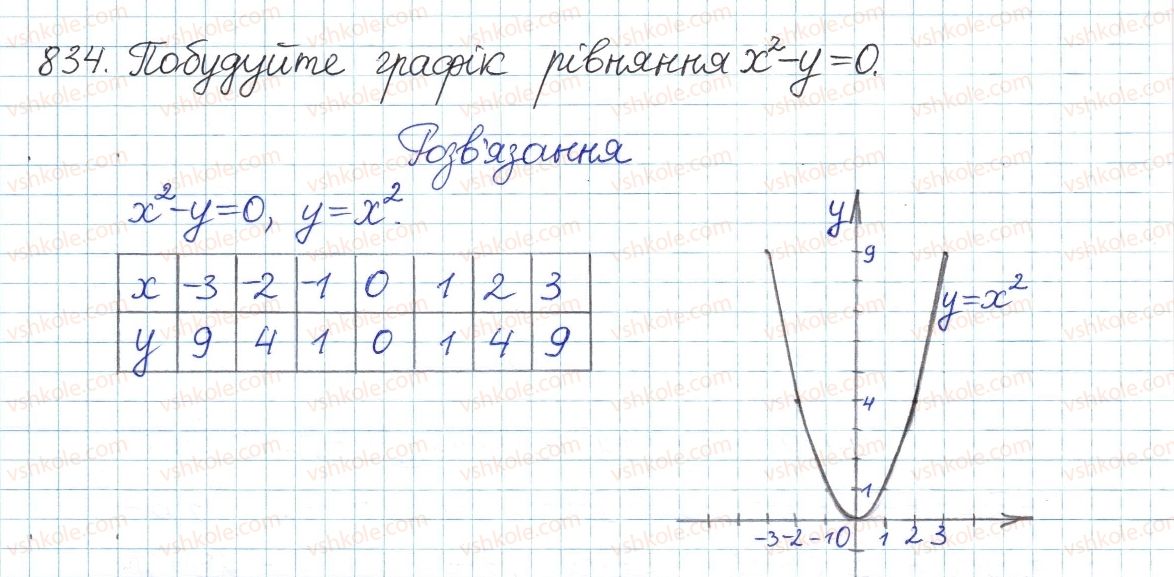 834. Побудуйте графік рівняння x²-y=0.
Розв'язання
x²-y=0, y=x².
x -3 -2 -1 0 1 2 3
y 9 4 1 0 1 4 9
y
9
y=x²
4
1
-3 -2 -1 0 1 2 3
vshkole.com